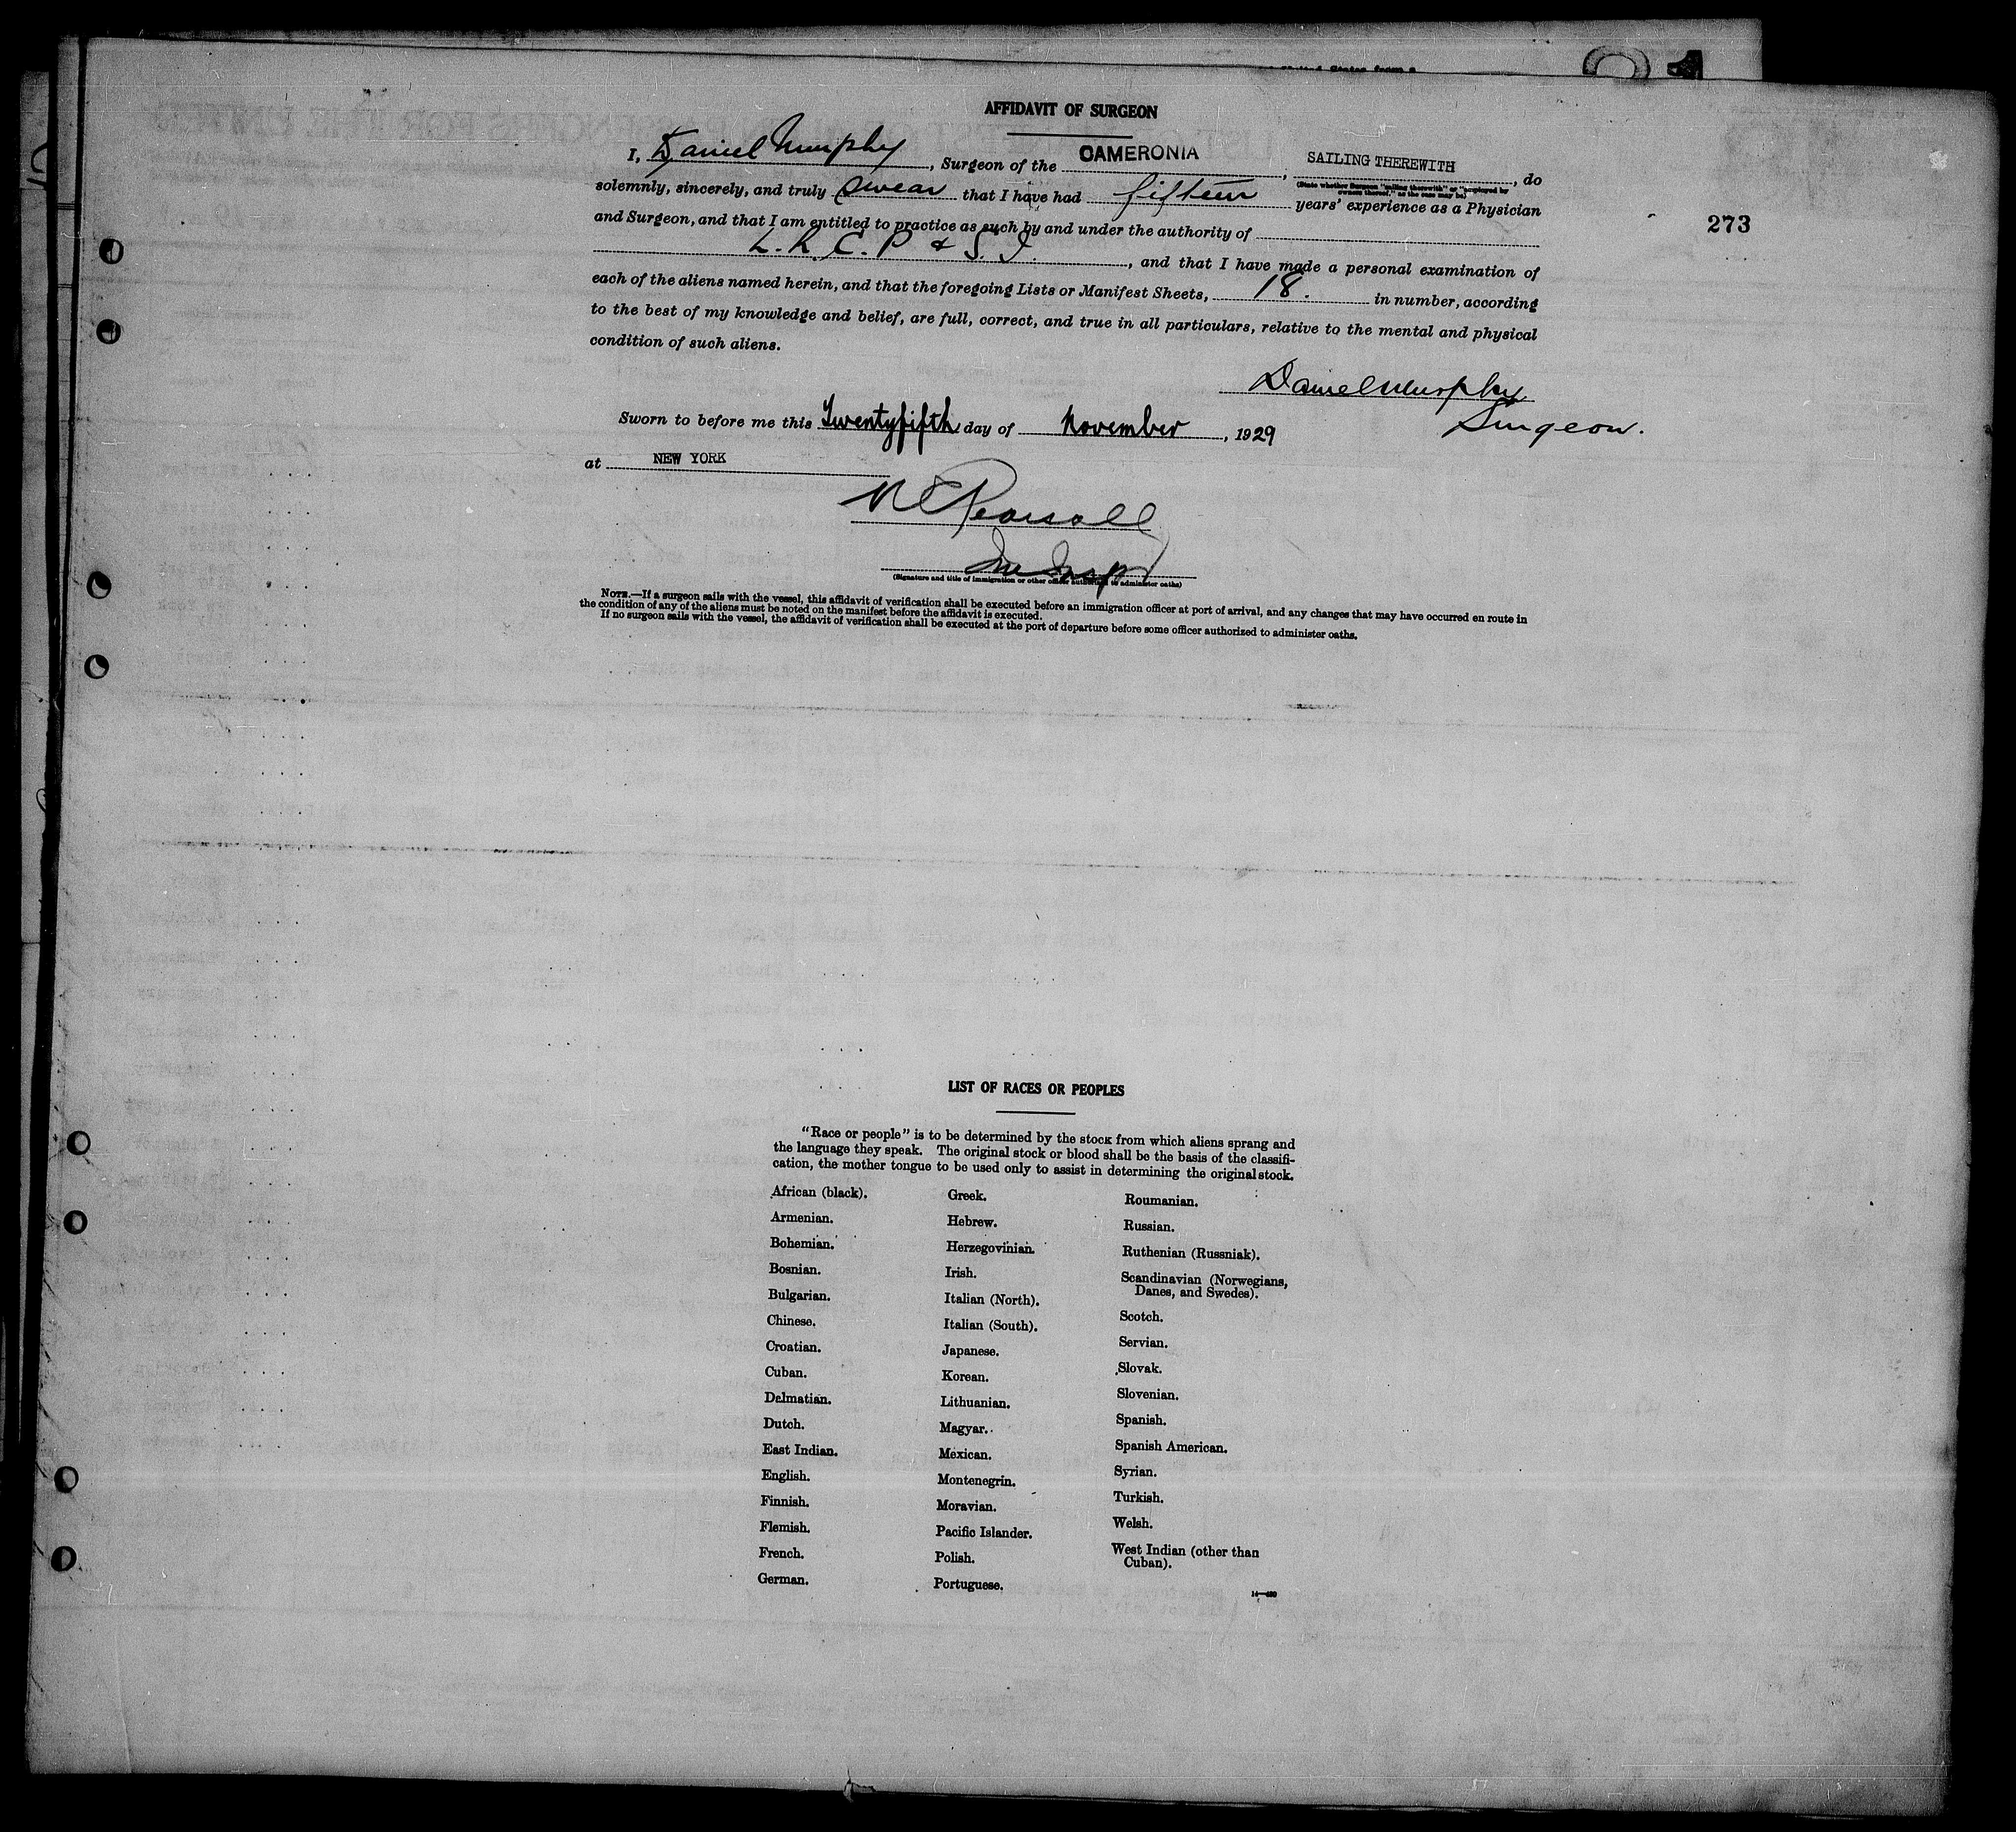 AFFIDAVIT OF SURGEON
I, Daniel Murphy, Surgeon of the CAMERONIA, SAILING THEREWITH, do
(State whether Surgeon "sailing therewith" or "employed by
owners thereof," as the case may be)
solemnly, sincerely, and truly swear that I have had fifteen years' experience as a Physician
and Surgeon, and that I am entitled to practice as such by and under the authority of
L. R. C. P & S. I., and that I have made a personal examination of
each of the aliens named herein, and that the foregoing Lists or Manifest Sheets, 18. in number, according
to the best of my knowledge and belief, are full, correct, and true in all particulars, relative to the mental and physical
condition of such aliens.
273
Daniel Murphy
Surgeon.
Sworn to before me this Twentyfifth day of November, 1929
at NEW YORK
Pearsall
(Signature and title of immigration or other officer authorized to administer oaths)
NOTE.—If a surgeon sails with the vessel, this affidavit of verification shall be executed before an immigration officer at port of arrival, and any changes that may have occurred en route in
the condition of any of the aliens must be noted on the manifest before the affidavit is executed.
If no surgeon sails with the vessel, the affidavit of verification shall be executed at the port of departure before some officer authorized to administer oaths.
LIST OF RACES OR PEOPLES
"Race or people" is to be determined by the stock from which aliens sprang and
the language they speak. The original stock or blood shall be the basis of the classifi-
cation, the mother tongue to be used only to assist in determining the original stock.
African (black).
Armenian.
Bohemian.
Bosnian.
Bulgarian.
Chinese.
Croatian.
Cuban.
Dalmatian.
Dutch.
East Indian.
English.
Finnish.
Flemish.
French.
German.
Greek.
Hebrew.
Herzegovinian.
Irish.
Italian (North).
Italian (South).
Japanese.
Korean.
Lithuanian.
Magyar.
Mexican.
Montenegrin.
Moravian.
Pacific Islander.
Polish.
Portuguese.
Roumanian.
Russian.
Ruthenian (Russniak).
Scandinavian (Norwegians,
Danes, and Swedes).
Scotch.
Servian.
Slovak.
Slovenian.
Spanish.
Spanish American.
Syrian.
Turkish.
Welsh.
West Indian (other than
Cuban).